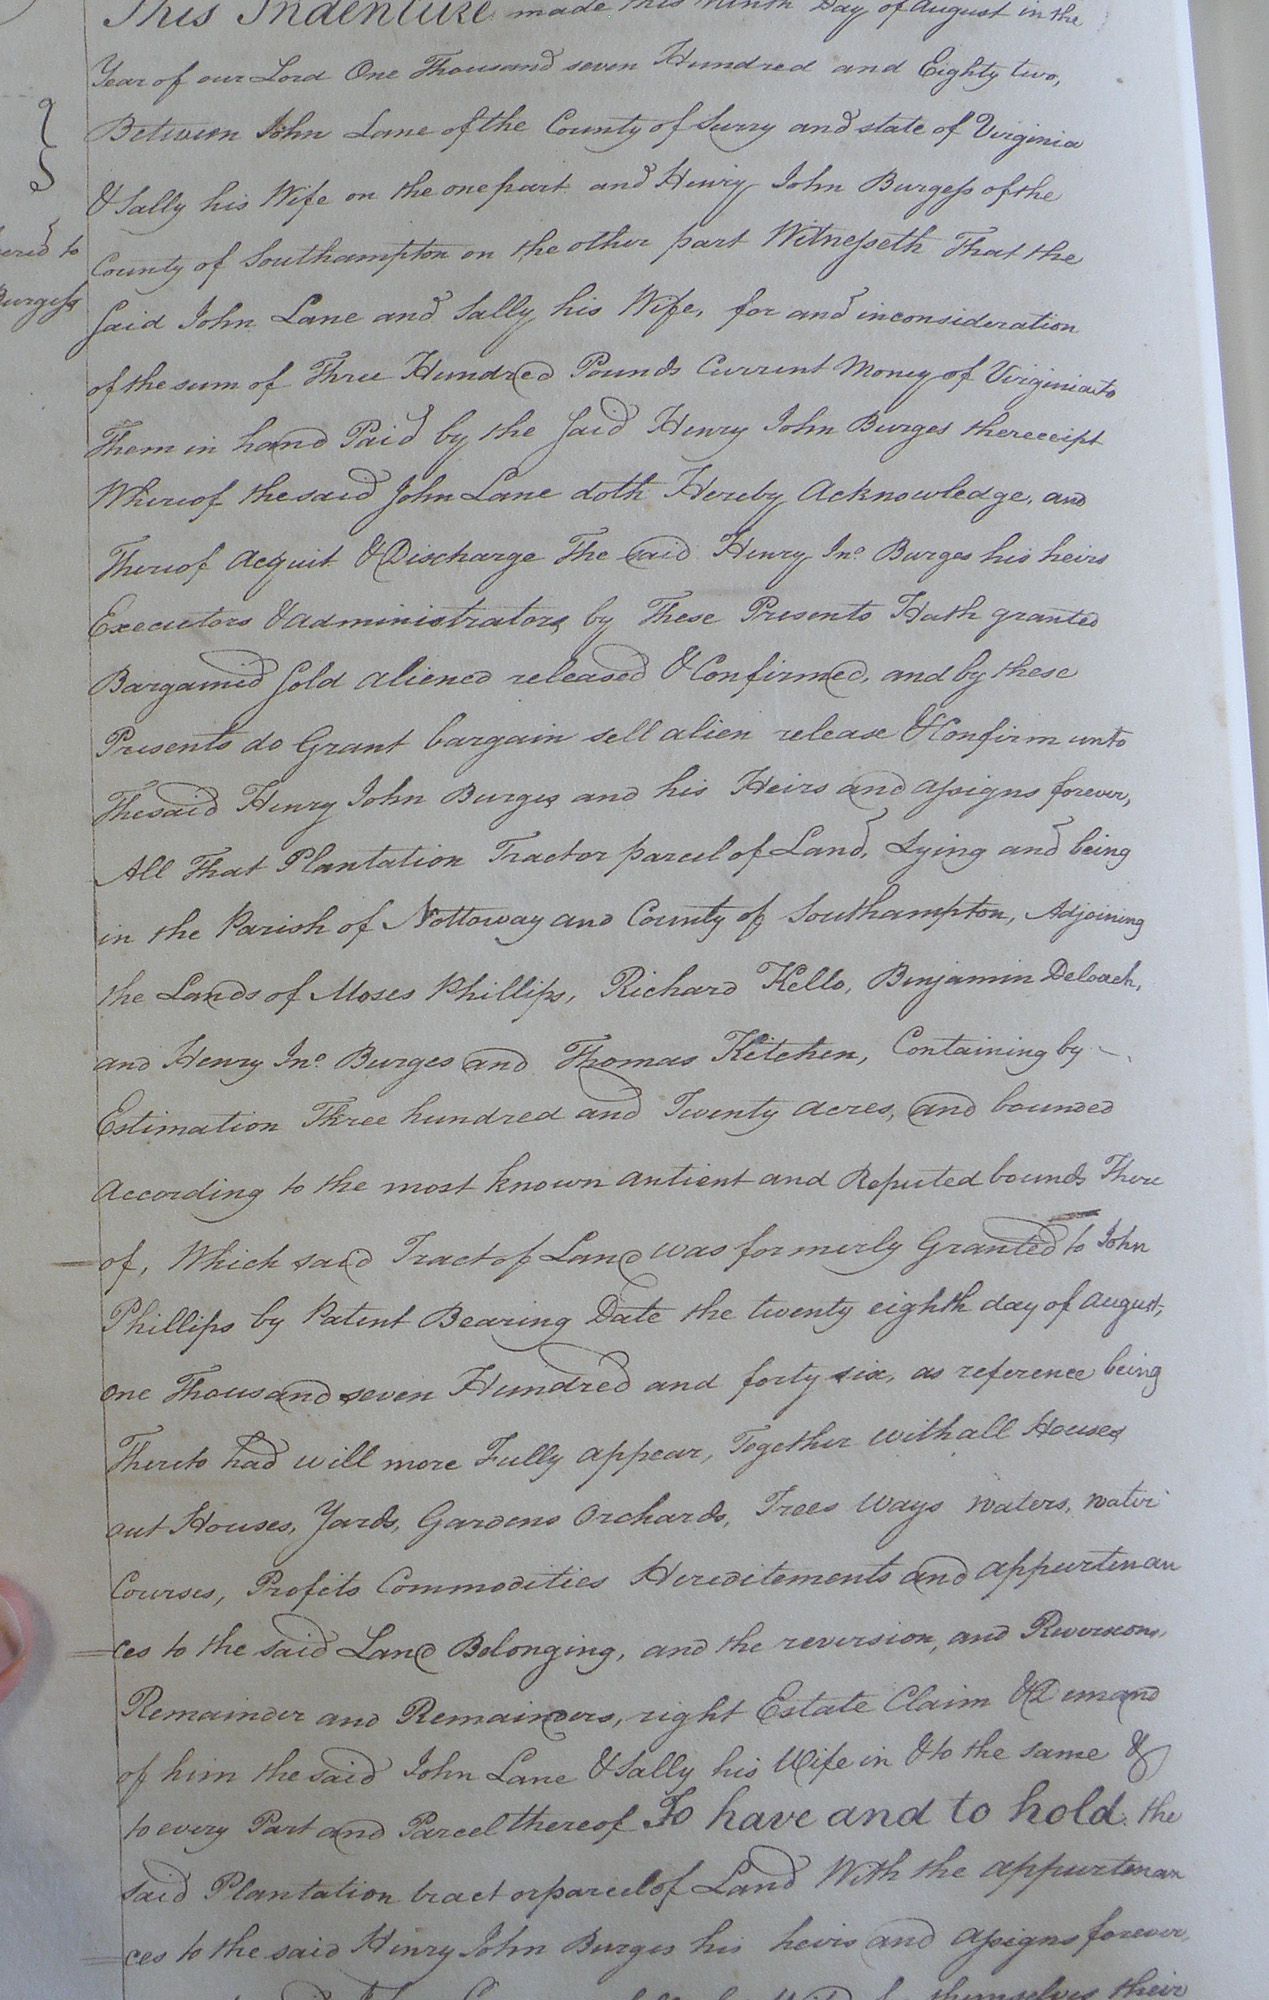 This Indenture made this ninth Day of August in the
Year of our Lord One Thousand seven Hundred and Eighty two,
Between John Lane of the County of Surry and state of Virginia
& Sally his Wife on the one part and Henry John Burgess of the
County of Southampton on the other part Witnesseth That the
Said John Lane and Sally his Wife, for and in consideration
of the sum of Three Hundred Pounds Current Money of Virginia to
Them in hand Paid by the Said Henry John Burges the receipt
Whereof the said John Lane doth Hereby Acknowledge, and
Thereof Acquit & Discharge The said Henry Jno. Burges his heirs
Executors & administrators by These Presents Hath granted
Bargained Sold aliened released & Confirmed, and by these
Presents do Grant bargain sell alien release & Confirm unto
The said Henry John Burges and his Heirs and assigns forever,
All That Plantation Tract or parcel of Land, Lying and being
in the Parish of Nottoway and County of Southampton, Adjoining
the Lands of Moses Phillips, Richard Kello, Benjamin Deloach,
and Henry Jno. Burges and Thomas Kitchen, Containing by
Estimation Three hundred and Twenty acres, and bounded
According to the most known antient and Reputed bounds There
of, Which said Tract of Land was formerly Granted to John
Phillips by Patent Bearing Date the twenty eighth day of August,
One Thousand seven Hundred and forty six, as reference being
Thereto had will more Fully appear, Together with all Houses
out Houses, Yards, Gardens Orchards, Trees Ways waters, water
Courses, Profits Commodities Hereditements and appurtenan
=ces to the said Land Belonging, and the reversion, and Reversions,
Remainder and Remainders, right Estate Claim & Demand
of him the said John Lane & Sally his Wife in & to the same &
to every Part and Parcel thereof To have and to hold the
said Plantation tract or parcel of Land With the appurtenan
=ces to the said Henry John Burges his heirs and assigns forever,
themselves their
ered to
Burgess